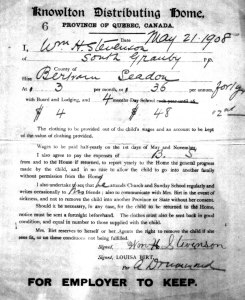 Knowlton Distributing Home,
6 PROVINCE OF QUEBEC, CANADA.
Date May 21 1908
I, Wm H Stevenson
of South Granby P.P.
County of
Bertram Seadon
At $ 3 per month, or $ 36 per annum, for 1 yr
with Board and Lodging, and 4 months Day School
$ 4 $ 48 " 2nd "
The clothing to be provided out of the child's wages and an account to be kept
of the value of clothing provided.
Wages to be paid half-yearly on the 1st days of May and November.
I also agree to pay the expenses of B. S
from and to the Home if unsuited, to report yearly to the Home the general progress
made by the child, and in no case to allow the child to go into another family
without permission from the Home.
I also undertake to see that he attends Church and Sunday School regularly and
writes occasionally to Mrs. Birt, also to communicate with Mrs. Birt in the event of
sickness, and not to remove the child into another Province or State without her consent.
Should it be necessary, in any case, for the child to be returned to the Home,
notice must be sent a fortnight beforehand. The clothes must also be sent back in good
condition, and equal in number to those supplied with the child.
Mrs. Birt reserves to herself or her Agents the right to remove the child if she
sees fit, or on these conditions not being fulfilled.
Signed, Wm H Stevenson
Signed, LOUISA BIRT,
Per
FOR EMPLOYER TO KEEP.